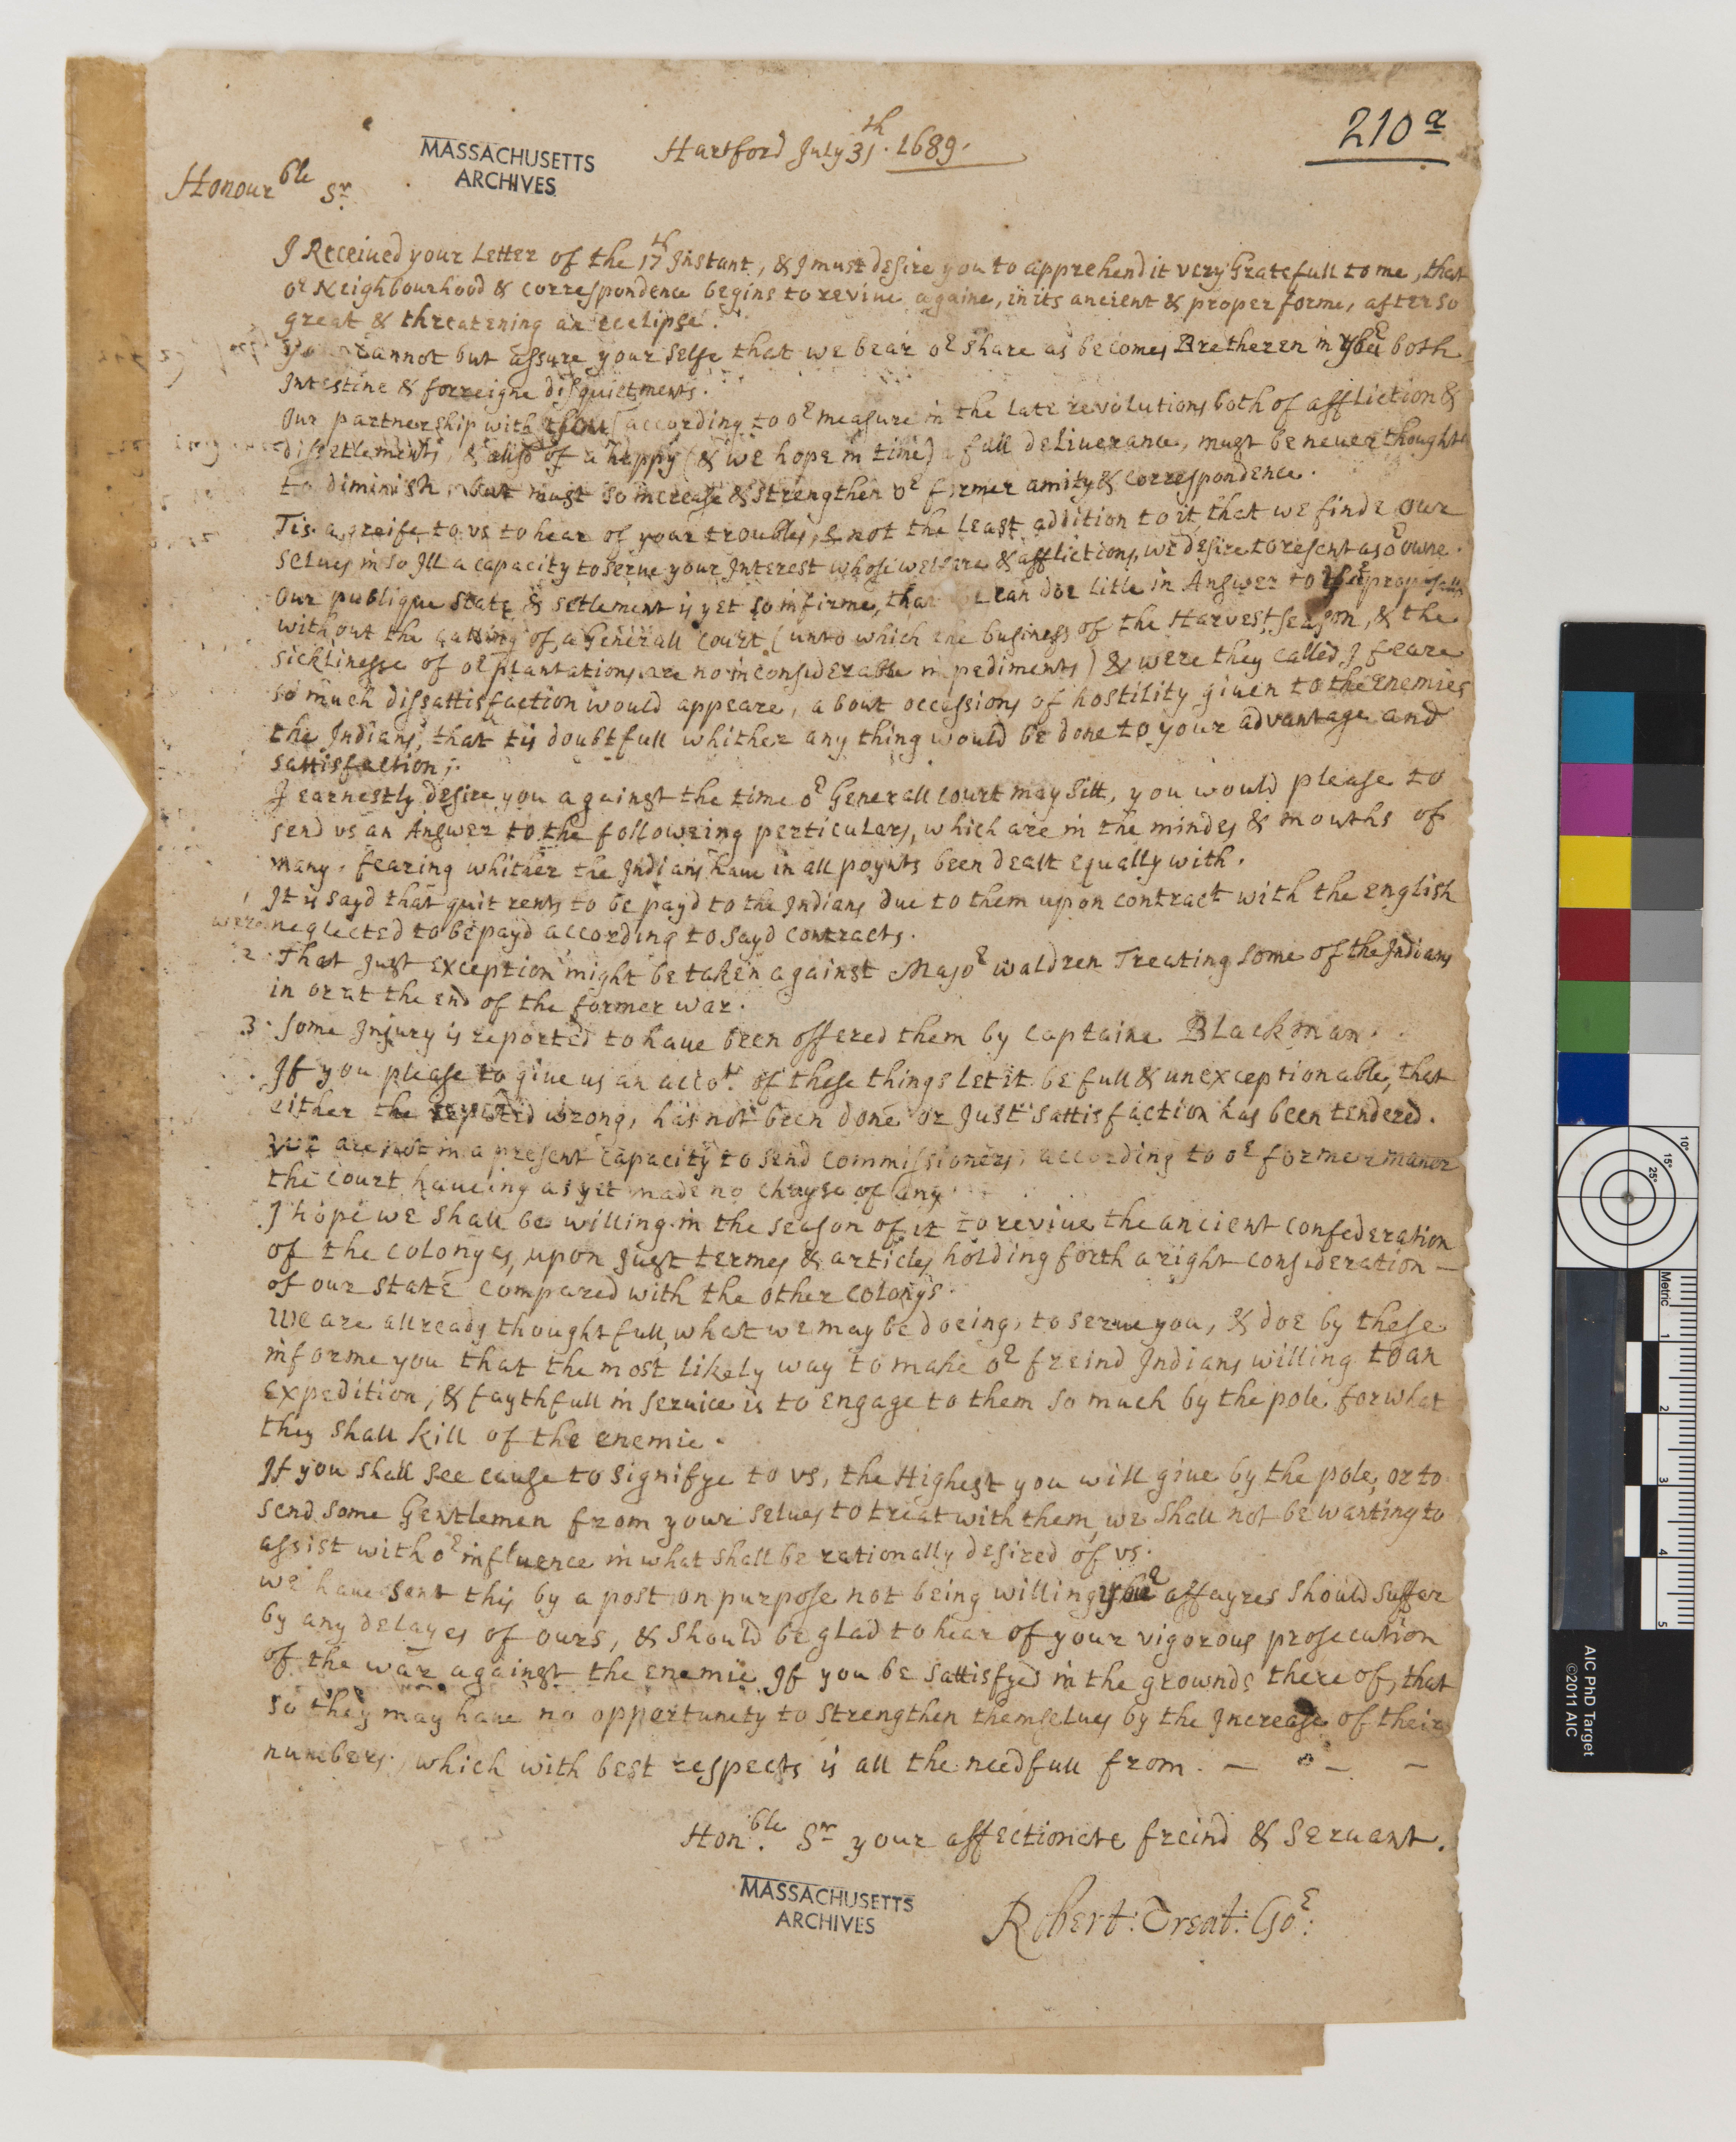 210a
MASSACHUSETTS
ARCHIVES
Hartford July 31th. 1689.
Honourble Sr
I Receiued your Letter of the 17th Instant, & I must desire you to apprehend it very Gratefull to me, that
or Neighbourhood & correspondence begins to reviue againe, in its ancient & proper forme, after so
great & threatening an eclipse.
You cannot but assure your selfe that we bear or share as becomes Bretheren in yor both
Intestine & forreigne disquietments.
Our partnership with you according to or measure in the late revolutions both of affliction &
dissetlements, & also of a happy (& we hope in time) a full deliuerance, must be neuer thought
to diminish, but must so increase & strengthen or former amity & correspondence.
Tis a greife to vs to hear of your troubles, & not the least addition to it, that we finde our
selues in so Ill a capacity to serue your Interest whose welfare & afflictions we desire to resent as or owne.
Our publique state & setlement is yet so infirme, that we can doe litle in Answer to yor proposalls
without the calling of a Generall Court (unto which the business of the Harvest season, & the
sicklinesse of or plantations are no inconsiderable impediments) & were they called I feare
so much dissattisfaction would appeare, about occassions of hostility giuen to the enemies
the Indians, that tis doubtfull whither any thing would be done to your advantage and
sattisfaction;
I earnestly desire you against the time or Generall Court may sitt, you would please to
send vs an Answer to the followeing perticulars, which are in the mindes & mouths of
many. fearing whither the Indians haue in all poynts been dealt equally with.
1 It is sayd that quit rents to be payd to the Indians due to them upon contract with the english
were neglected to be payd according to sayd contracts.
2 That just exception might be taken against Major waldren Treating some of the Indians
in or at the end of the former war.
3 some Injury is reported to haue been offered them by Captaine Blackman.
If you please to giue us an accot. of these things let it be full & unexceptionable, that
either the reported wrong, has not been done or just sattisfaction has been tendered.
We are not in a present capacity to send commissioners, according to or former maner
the court haueing as yet made no choyse of any.
I hope we shall be willing in the season of it to reviue the ancient confederation
of the colonyes, upon just termes & articles holding forth a right consideration —
of our state compared with the other colonys.
We are allready thoughtfull, what we may be doeing, to serue you, & doe by these
informe you that the most likely way to make or freind Indians willing to an
expedition, & faythfull in seruice is to engage to them so much by the pole for what
they shall kill of the enemie.
If you shall see cause to signifye to vs, the Highest you will giue by the pole, or to
send some Gentlemen from your selues to treat with them, we shall not be wanting to
assist with or influence in what shall be rationally desired of vs.
we haue sent this by a post on purpose not being willing yor affayres should suffer
by any delayes of ours, & should be glad to hear of your vigorous prosecution
of the war against the enemie If you be sattisfyed in the grownds there of, that
so they may haue no opportunety to strengthen themselues by the Increase of their
numbers. which with best respects is all the needfull from. — —
Honble. Sr your affectionate freind & seruant.
MASSACHUSETTS
ARCHIVES
Robert: Treat: Gor:
10°
15°
25°
Metric
1
2
3
4
5
AIC PhD Target
©2011 AIC